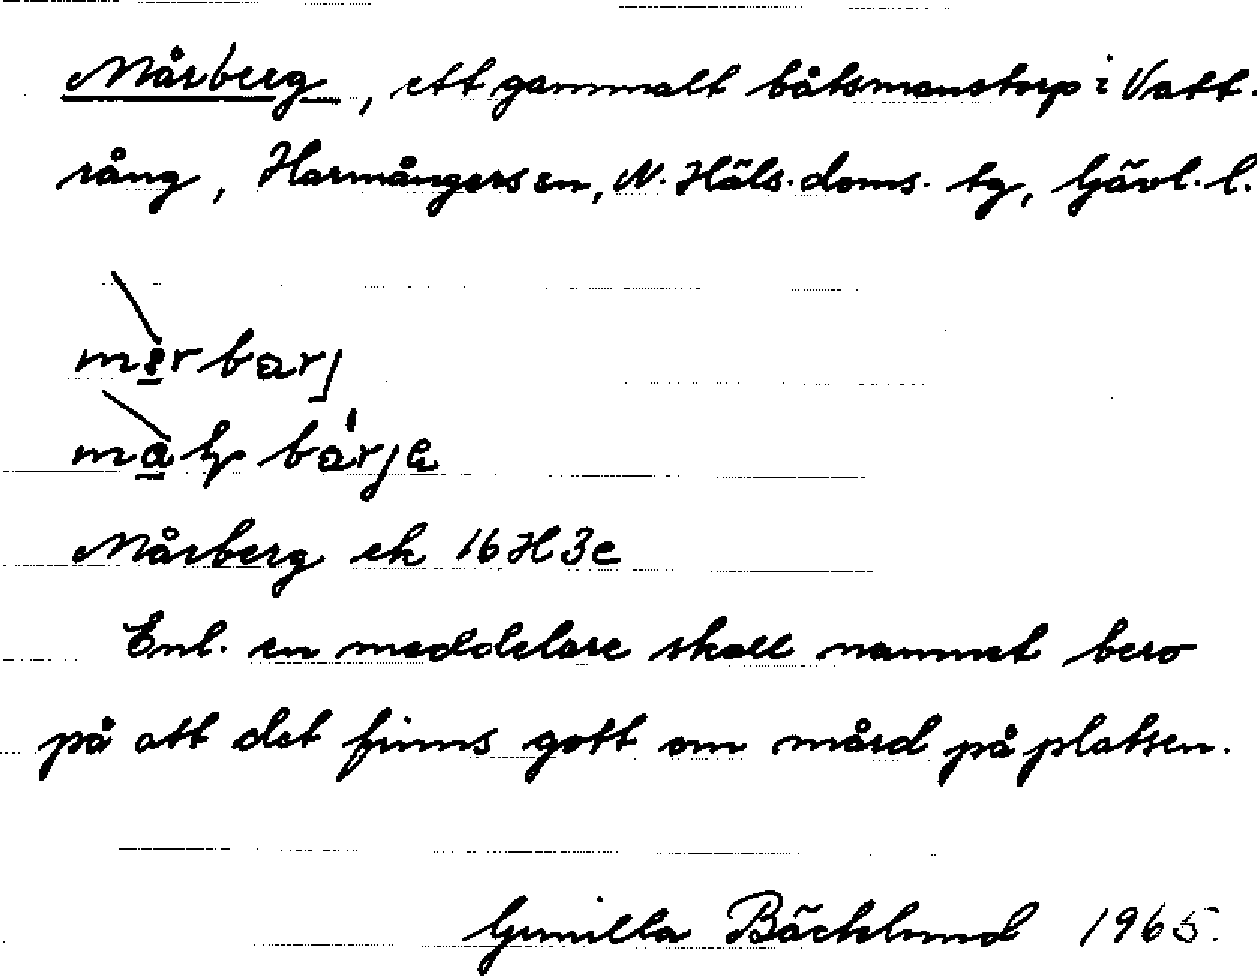 Mårberg, ett gammalt båtsmanstorp i Vatt-
rång, Harmångers sn, N. Häls. doms. tg, Gävl. l.
Mårberg ek 16 H 3e
Enl. en meddelare skall namnet bero
på att det finns gott om mård på platsen.
Gunilla Bäcklund 1965.